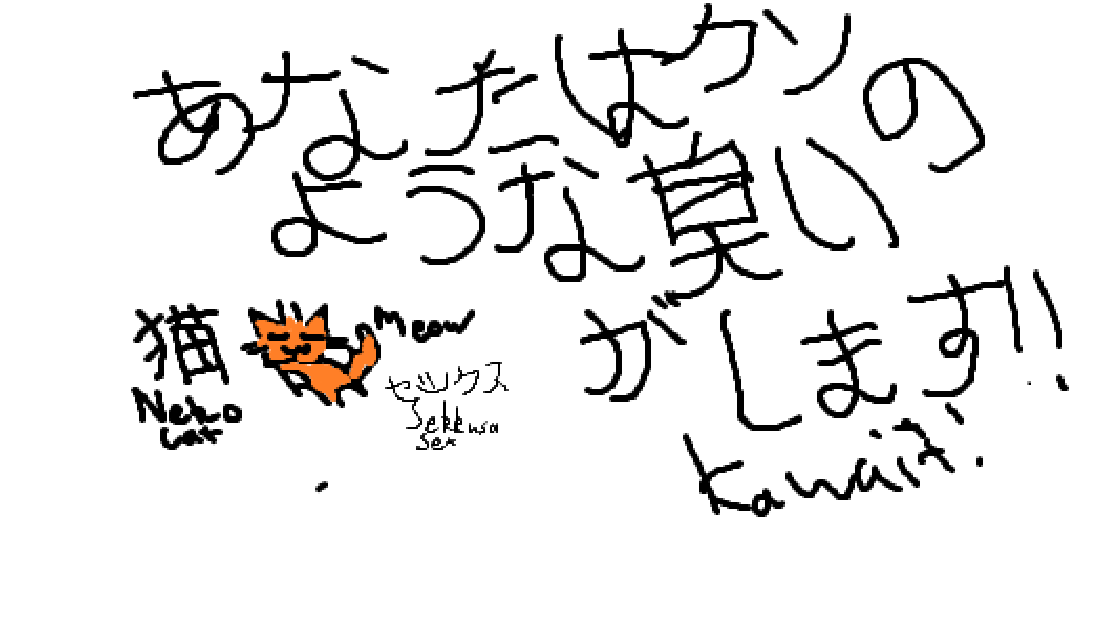 あなたはクソの
ような臭い
がします!!
猫
Neko
cat
Meow
セックス
Sekkusu
sex
Kawaii!